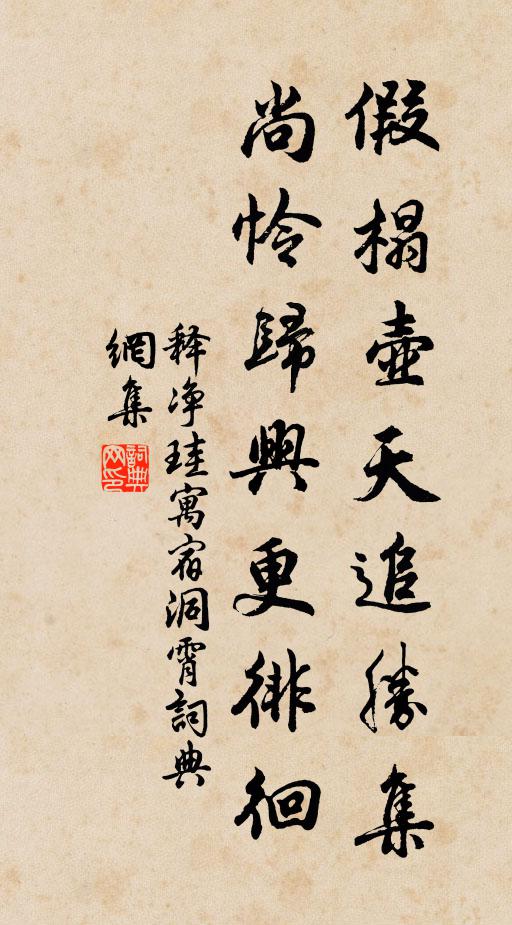 假榻壺天追勝集
尚怜歸興更徘徊
释净珪寓宿洞霄詞典
網集
詞典網印